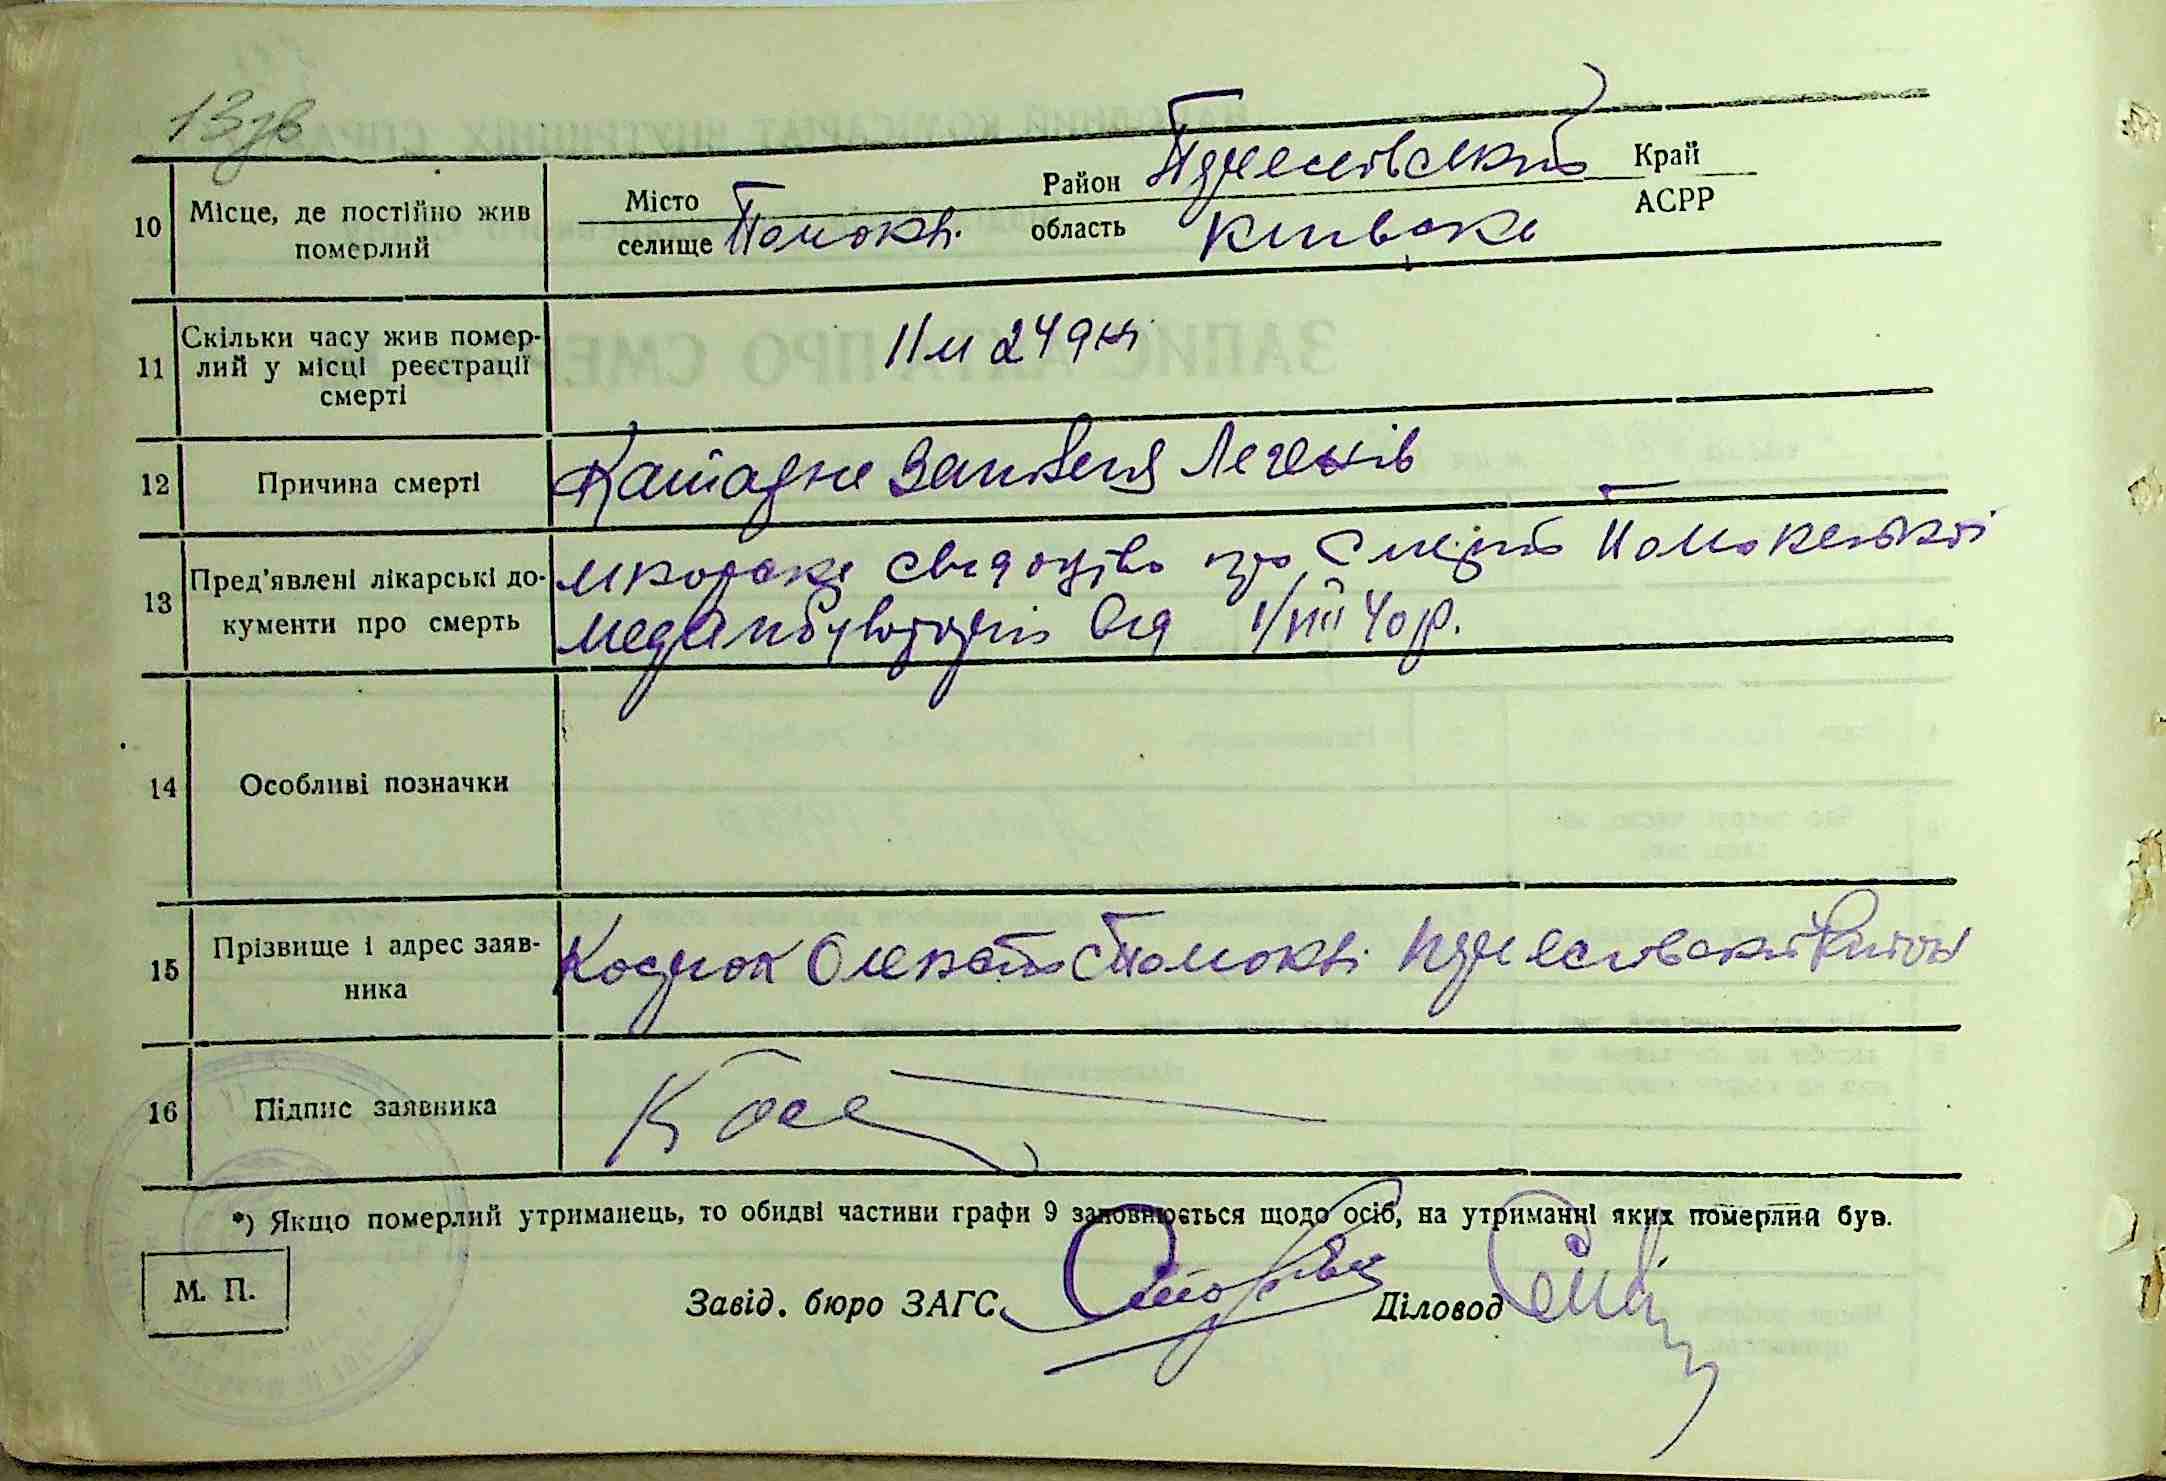 13зв
10 Місце, де постійно жив померлий
Місто селище Помокл. Район Переяславський область Київська Край АСРР
11 Скільки часу жив померлий у місці реєстрації смерті 11 м 24 дні
12 Причина смерті Катаральне Запаленя Легенів
13 Пред'явлені лікарські документи про смерть
лікарське свідоцтво про смерть Помокельської
Медамбулаторії від 1/VIII 40 р.
14 Особливі позначки
15 Прізвище і адрес заявника с Помоклі район
16 Підпис заявника Кос
*) Якщо померлий утриманець, то обидві частини графи 9 заповнюється щодо осіб, на утриманні яких померлий був.
М. П.
Завід. бюро ЗАГС Діловод